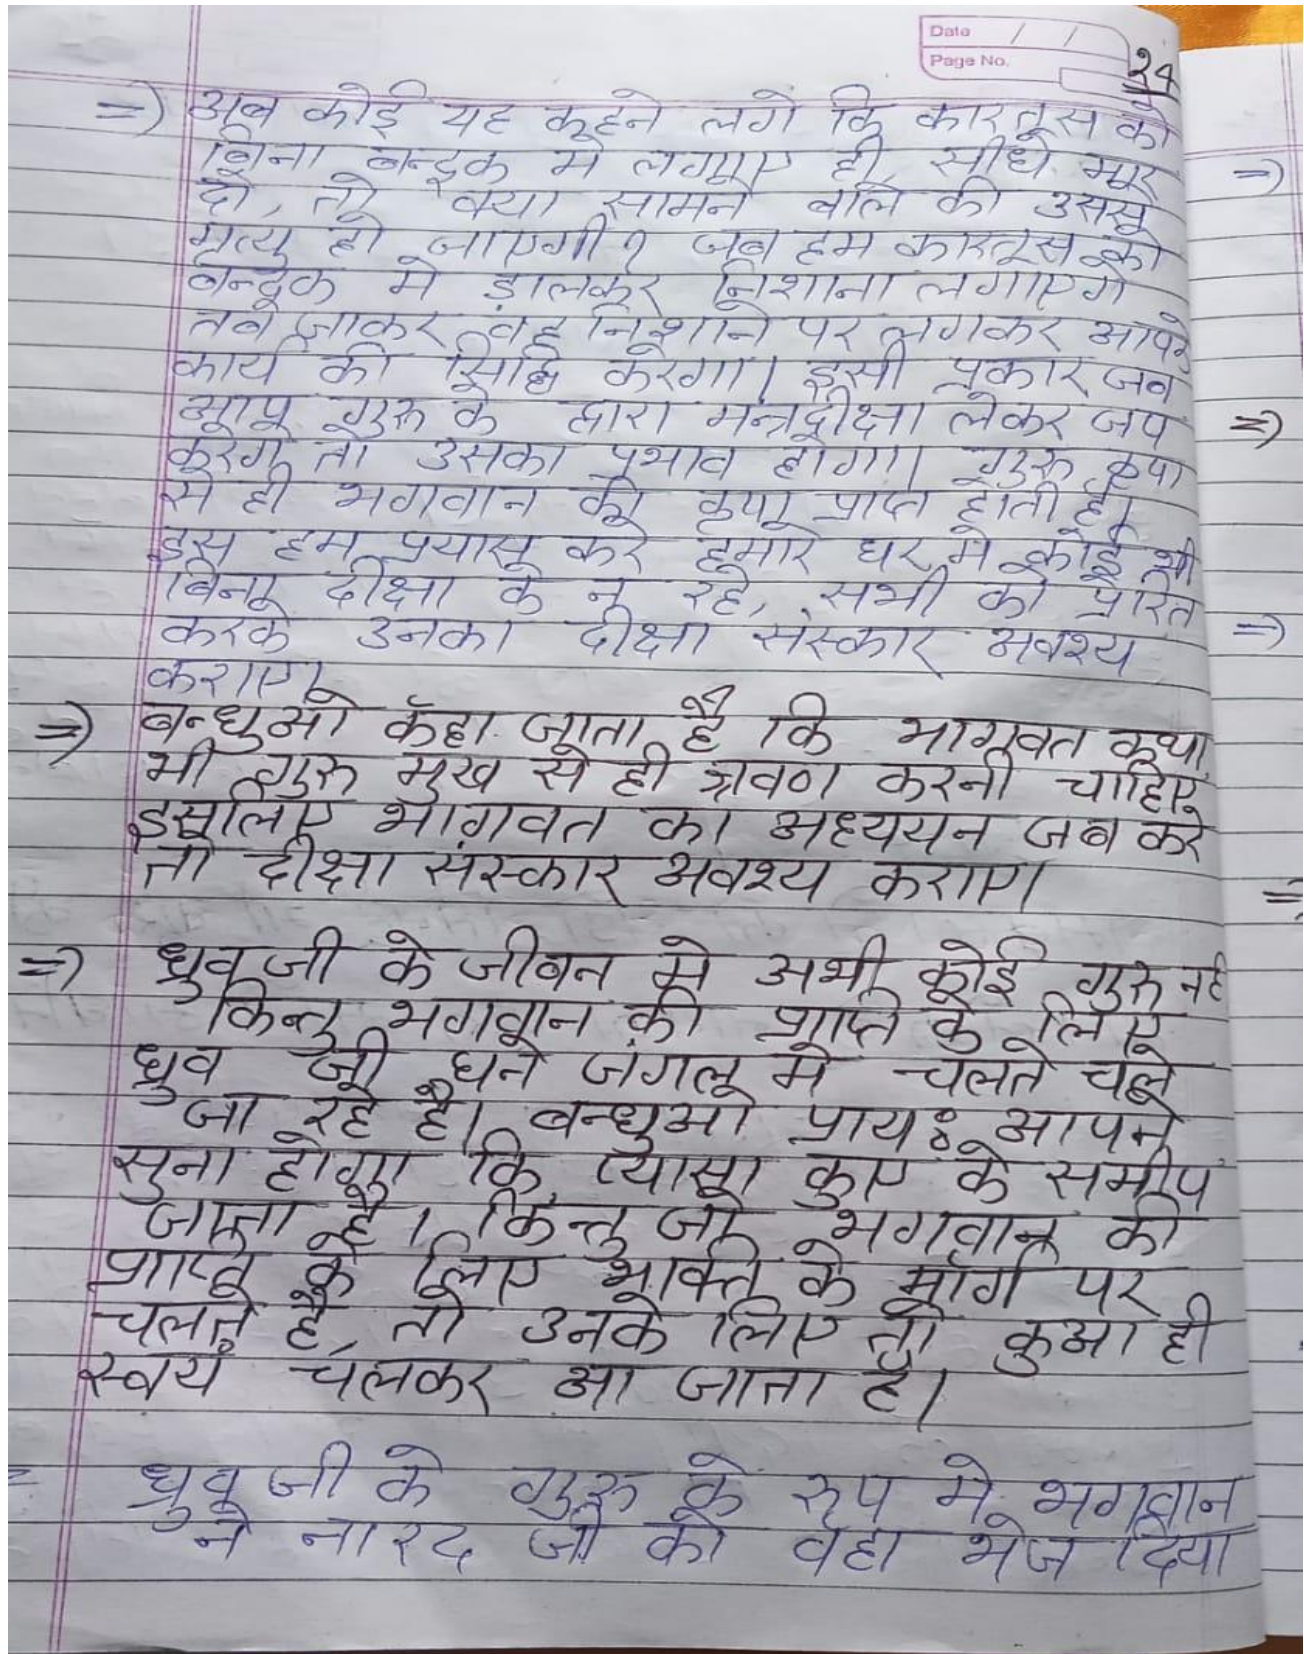 Date / /
Page No.
24
=) अब कोई यह कहने लगे कि कारतूस को
बिना बन्दूक मे लगाए ही सीधे मार
दो, तो क्या सामने वाले की उससे
मृत्यु हो जाएगी? जब हम कारतूस को
बन्दूक मे डालकर निशाना लगाएगे
तब जाकर वह निशाने पर लगकर आपके
कार्य की सिद्धि करेगा। इसी प्रकार जब
आप गुरु के द्वारा मन्त्रदीक्षा लेकर जप
करेगे तो उसका प्रभाव होगा। गुरु कृपा
से ही भगवान की कृपा प्राप्त होती है।
इस हम प्रयास करे हमारे घर मे कोई भी
बिना दीक्षा के न रहे, सभी को प्रेरित
करके उनका दीक्षा संस्कार अवश्य
कराए।
=) बन्धुओ कहा जाता है कि भागवत कथा
भी गुरु मुख से ही श्रवण करनी चाहिए
इसलिए भागवत का अध्ययन जब करे
तो दीक्षा संस्कार अवश्य कराए।
=) ध्रुव जी के जीवन मे अभी कोई गुरु नही
किन्तु भगवान की प्राप्ति के लिए
ध्रुव जी घने जंगल मे चलते चले
जा रहे है। बन्धुओ प्रायः आपने
सुना होगा कि प्यासा कुए के समीप
जाता है। किन्तु जो भगवान की
प्राप्ति के लिए भक्ति के मार्ग पर
चलते है, तो उनके लिए तो कुआ ही
स्वयं चलकर आ जाता है।
ध्रुव जी के गुरु के रूप मे भगवान
ने नारद जी को वहा भेज दिया
=)
=)
=)
=)